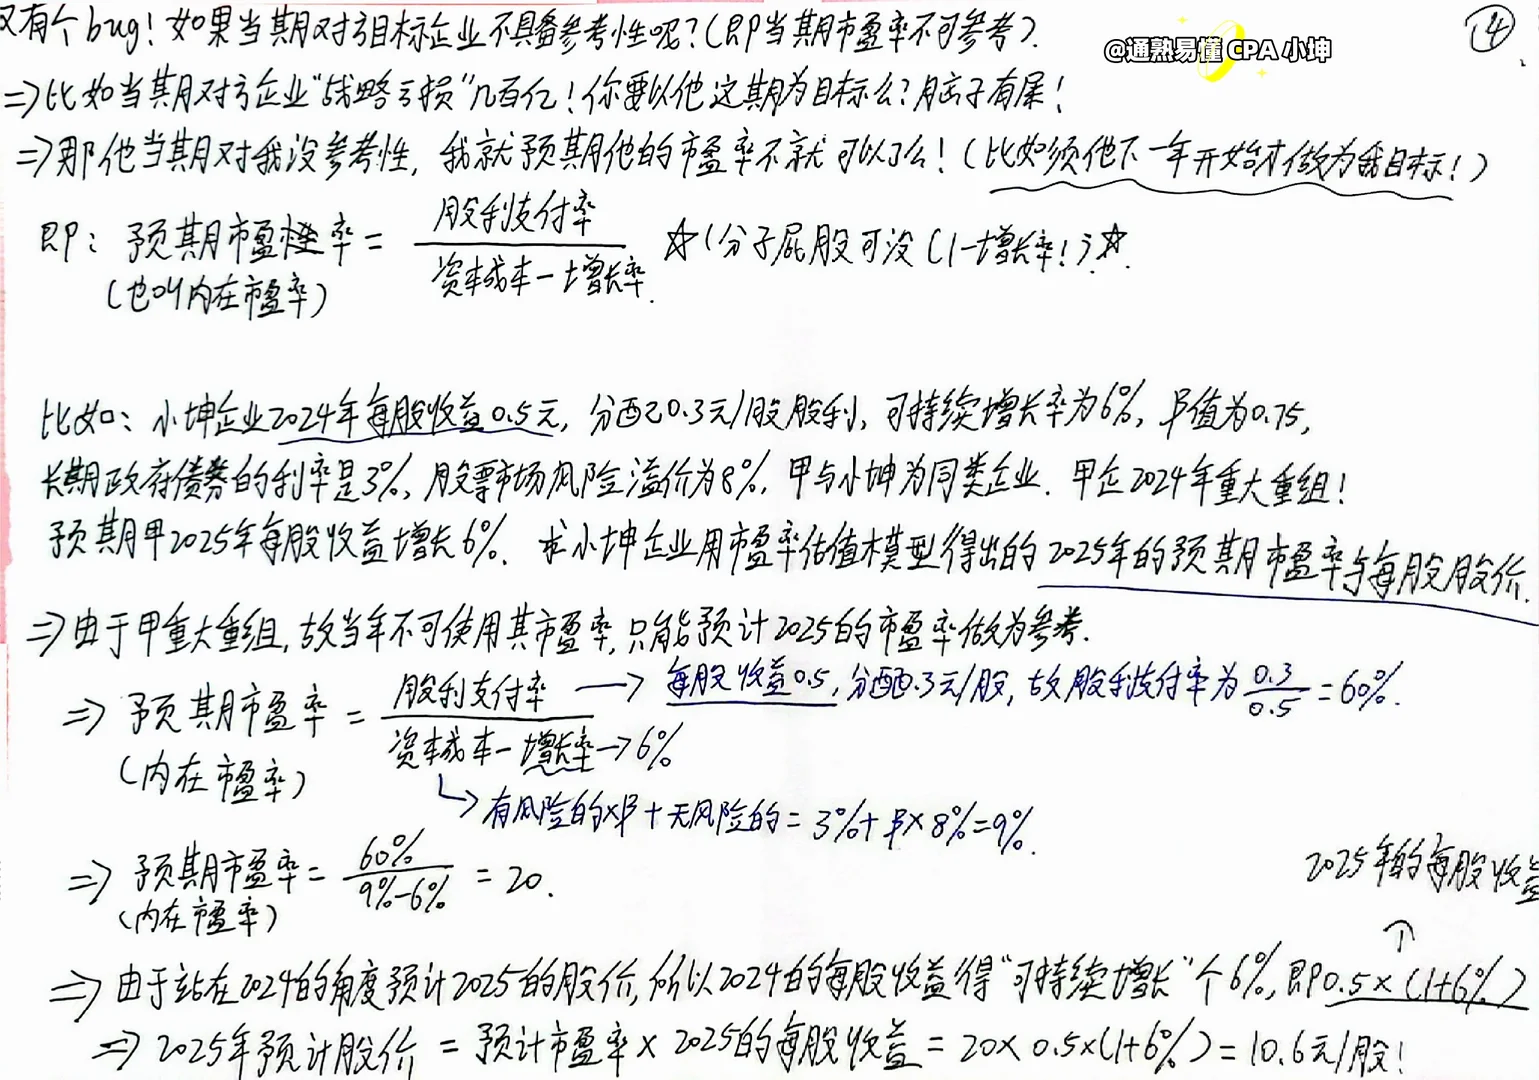 又有个bug！如果当期对方目标企业不具备参考性呢？（即当期市盈率不可参考）.
④
@通熟易懂 CPA 小坤
⇒比如当期对方企业“战略亏损”几百亿！你要以他这期为目标么？脑子有屎！
⇒那他当期对我没参考性，我就预期他的市盈率不就可以了么！（比如须他下一年开始才做为我目标！）
即：预期市盈率 = 股利支付率 / 资本成本－增长率. ☆（分子屁股可没（1+增长率！）☆.
（也叫内在市盈率）
比如：小坤企业2024年每股收益0.5元，分配了0.3元/股股利，可持续增长率为6%，β值为0.75，
长期政府债券的利率是3%，股票市场风险溢价为8%，甲与小坤为同类企业．甲企2024年重大重组！
预期甲2025年每股收益增长6%．求小坤企业用市盈率估值模型得出的2025年的预期市盈率与每股股价.
⇒由于甲重大重组，故当年不可使用其市盈率，只能预计2025的市盈率做为参考.
⇒ 预期市盈率 = 股利支付率 / 资本成本－增长率→6%
→ 每股收益0.5，分配0.3元/股，故股利支付率为 0.3/0.5 = 60%.
（内在市盈率）
↳ 有风险的×β + 无风险的 = 3% + β×8% = 9%.
⇒ 预期市盈率 = 60% / 9%-6% = 20.
（内在市盈率）
2025年的每股收益
↑
⇒ 由于站在2024的角度预计2025的股价，所以2024的每股收益得“可持续增长”个6%，即0.5×(1+6%)
⇒ 2025年预计股价 = 预计市盈率 × 2025的每股收益 = 20×0.5×(1+6%) = 10.6元/股！